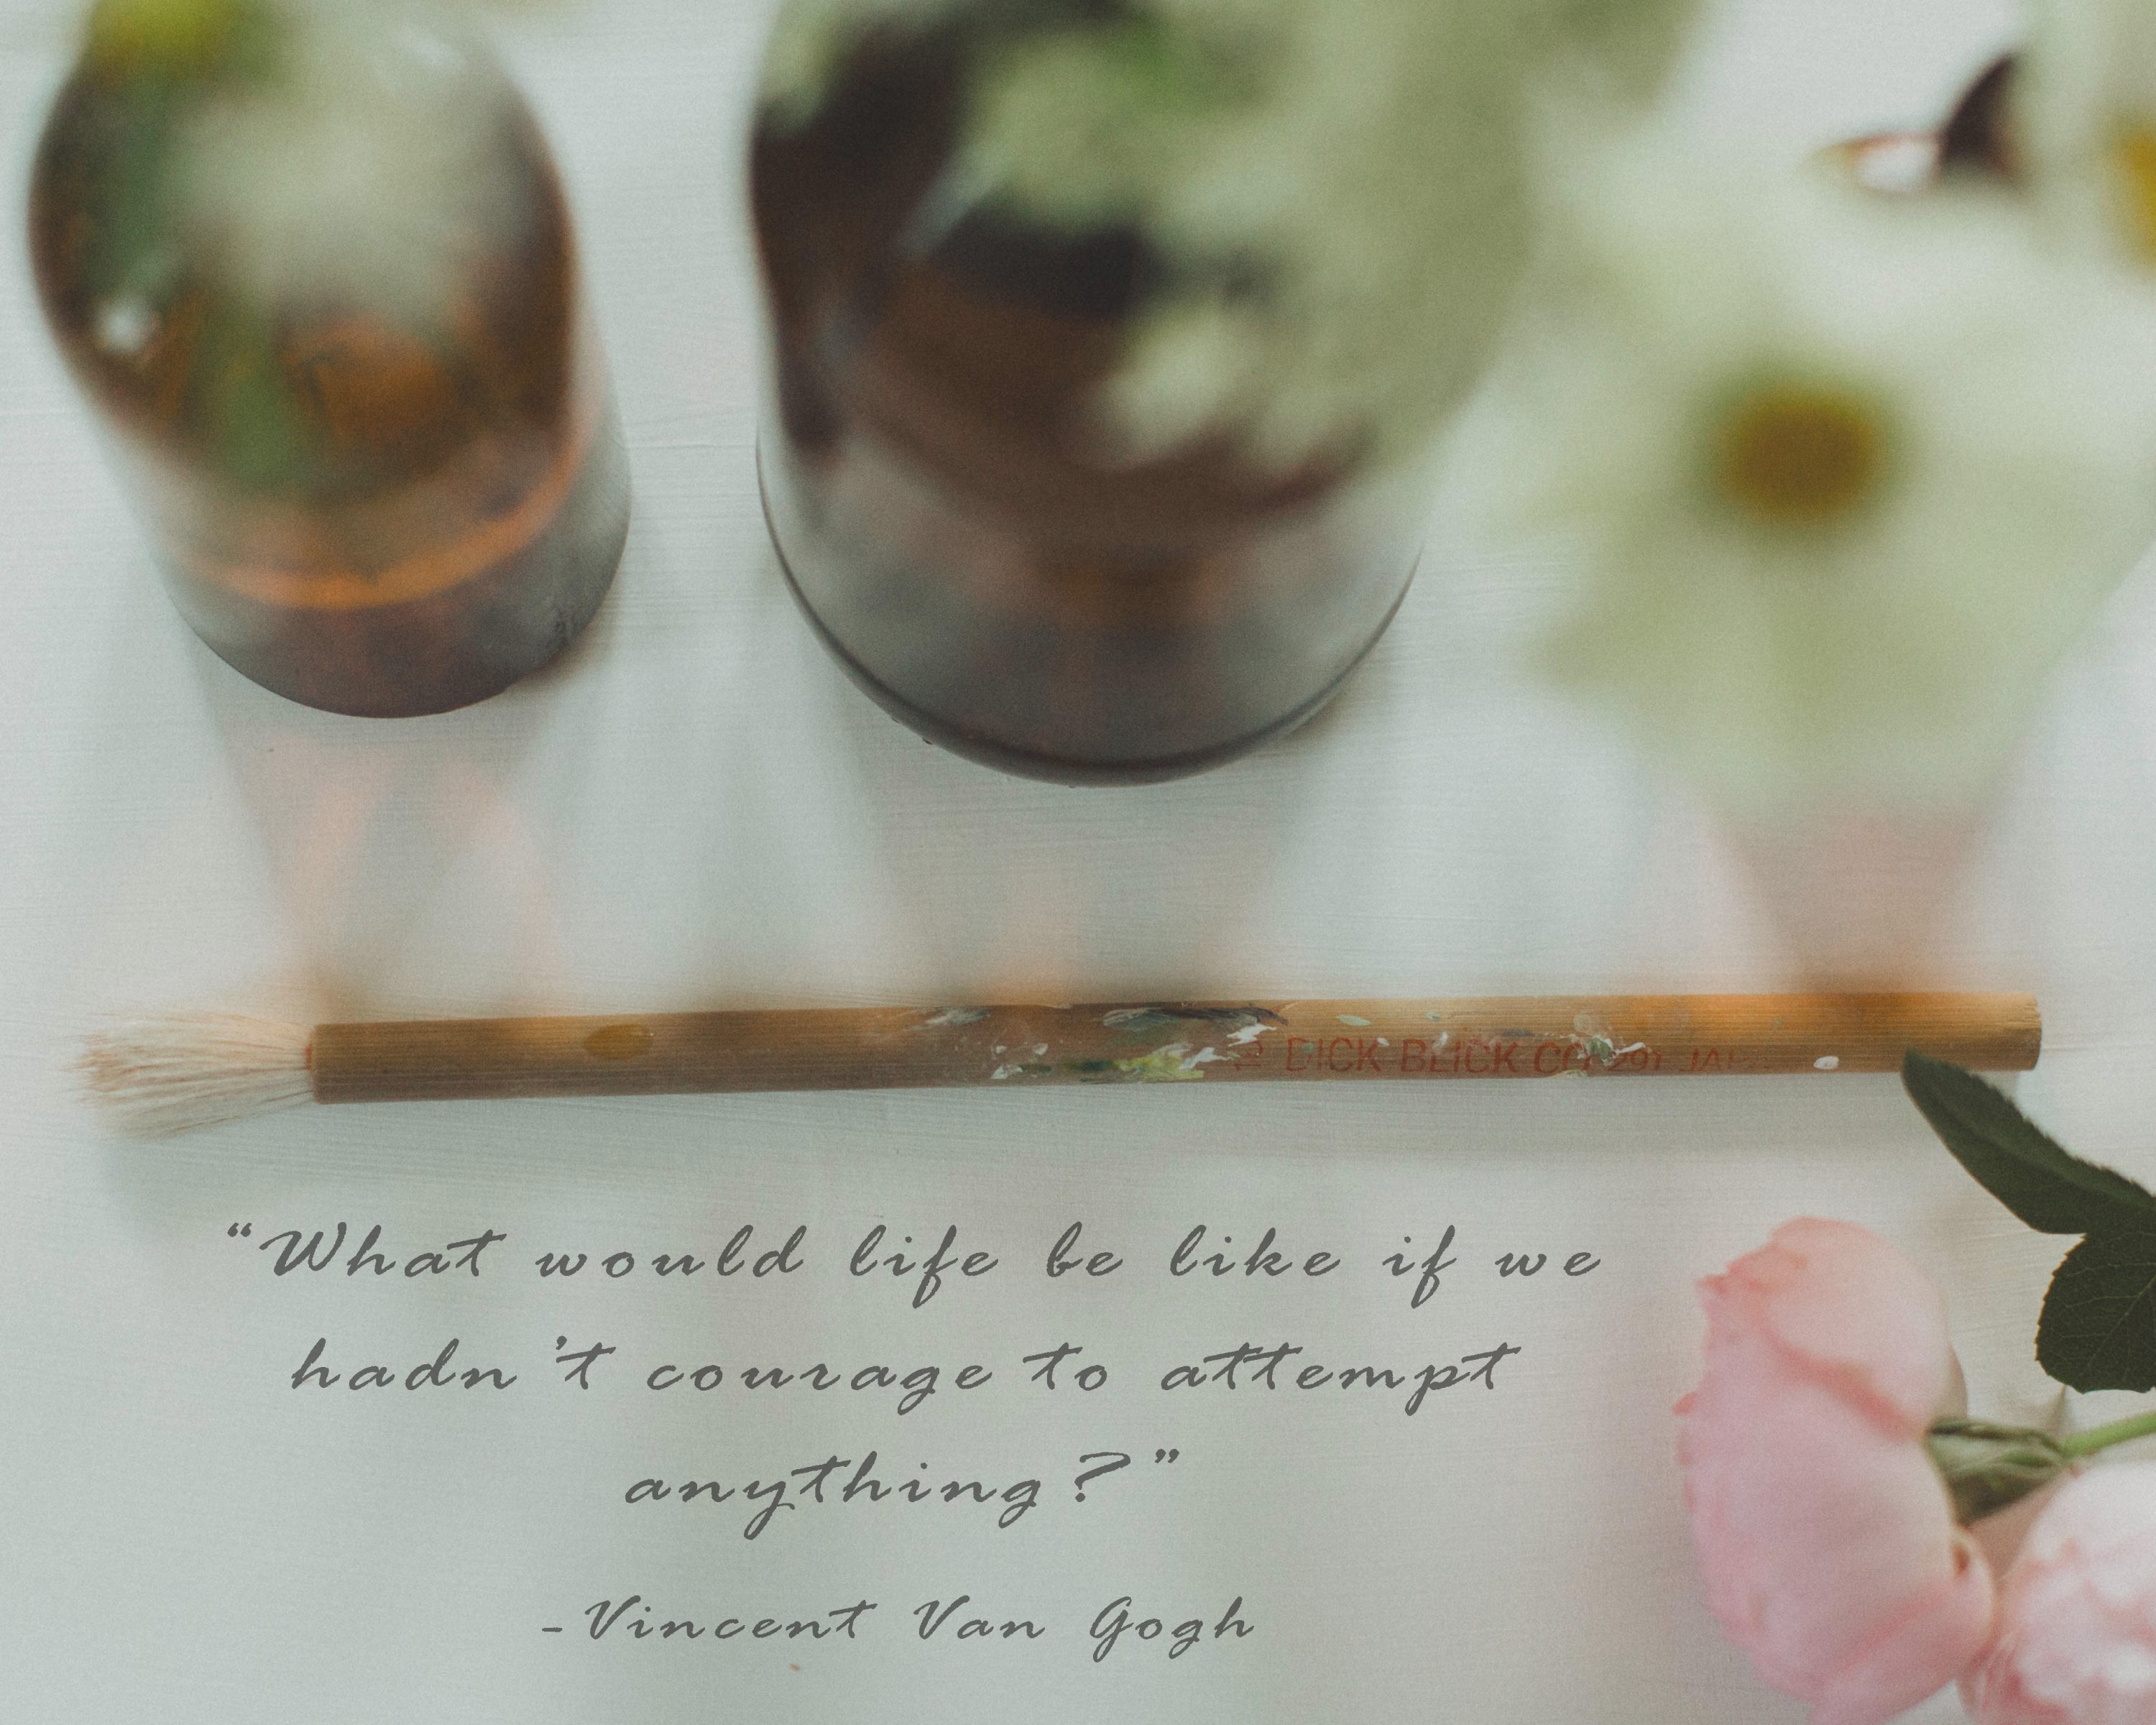 DICK BLICK CO
“What would life be like if we
hadn’t courage to attempt
anything?”
-Vincent Van Gogh